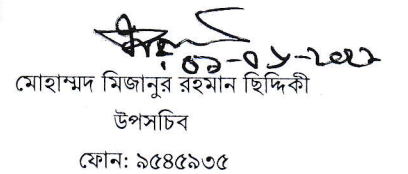 ০১-০৮-২০২২
মোহাম্মদ মিজানুর রহমান ছিদ্দিকী
উপসচিব
ফোন: ৯৫৪৫৯৩৫